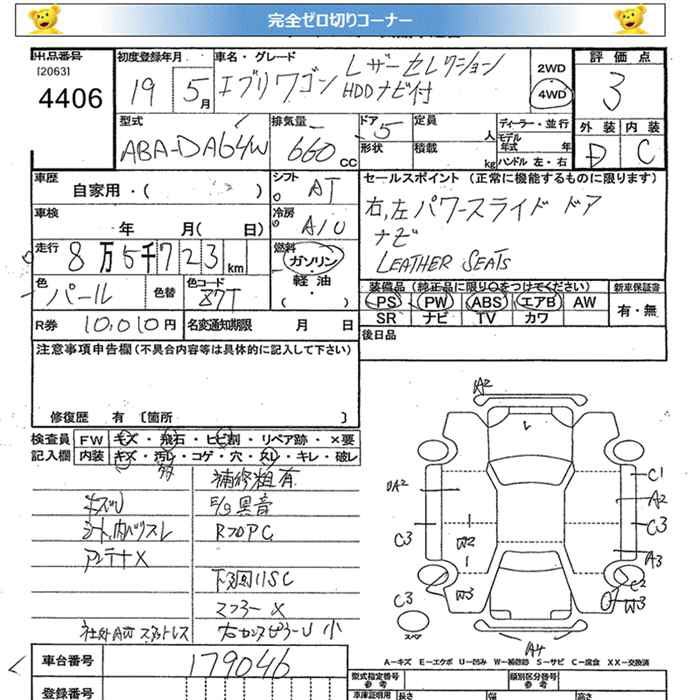 完全ゼロ切りコーナー
出品番号
[2063]
4406
初度登録年月
19 5月
車名・グレード
エブリワゴン レザーセレクション
HDDナビ付
2WD
4WD
評価点
3
外装 内装
D C
型式
ABA-DA64W
排気量
660cc
ドア 5
形状
定員 人
積載 kg
ディーラー・並行
モデル年式 年
ハンドル 左・右
車歴
自家用・( )
シフト
AT
車検
年 月( 日)
冷房
走行
8万5千723km
燃料
ガソリン・
軽油・
( )
色
パール
色替
色コード
Z7T
R券 10,010円
名変通知期限 月 日
セールスポイント (正常に機能するものに限ります)
右,左パワースライドドア
ナビ
LEATHER SEATS
装備品(純正品に限り○をつけてください)
新車保証書
PS PW ABS エアB AW
SR ナビ TV カワ
有・無
後日品
注意事項申告欄(不具合内容等は具体的に記入して下さい)
修復歴 有 〔箇所 〕
検査員 FW キズ・飛石・ヒビ割・リペア跡・×要
記入欄 内装 キズ・汚レ・コゲ・穴・スレ・キレ・破レ
補修粗有
E/G異音
アンテナX
下廻りSC
マフラーX
車台番号
179046
登録番号
A2
DA2
C3
W2
W3
C3
スペア
C1
A2
C3
A3
C2
W3
A4
A－キズ E－エクボ U－凹み W－補修跡 S－サビ C－腐食 XX－交換済
型式指定番号
参考
類別区分番号
参考
車庫証明用
長さ
幅
高さ